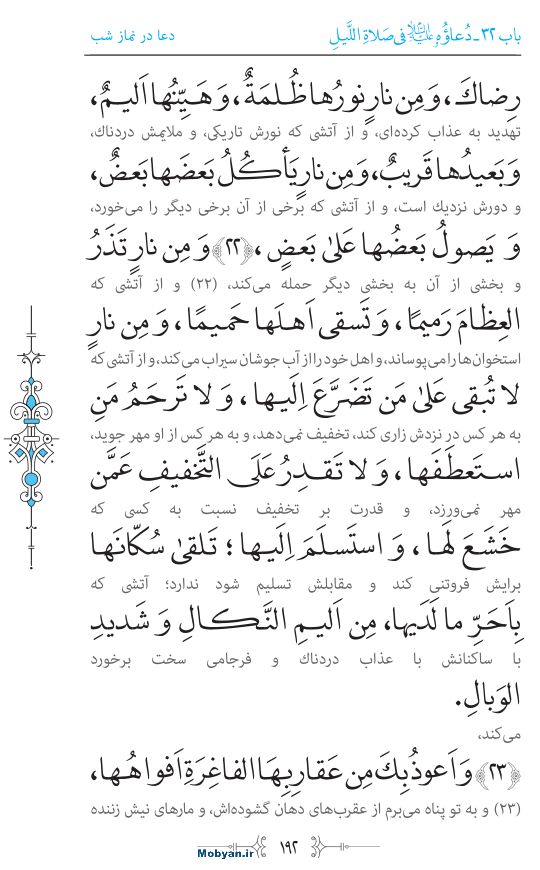 باب ۳۲ـ دُعاؤُهُ عليه‌السلام فی صَلاةِ اللَّیلِ
دعا در نماز شب
رِضاكَ، وَ مِن نارٍ نورُها ظُلمَةٌ، وَ هَیِّنُها اَلیمٌ،
تهدید به عذاب کرده‌ای، و از آتشی که نورش تاریکی، و ملایمش دردناك،
وَ بَعیدُها قَریبٌ، وَ مِن نارٍ یَأکُلُ بَعضَها بَعضٌ،
و دورش نزدیك است، و از آتشی که برخی از آن برخی دیگر را می‌خورد،
وَ یَصولُ بَعضُها عَلیٰ بَعضٍ، ﴿۲۲﴾ وَ مِن نارٍ تَذَرُ
و بخشی از آن به بخشی دیگر حمله می‌کند، (۲۲) و از آتشی که
العِظامَ رَمیمًا، وَ تَسقی اَهلَها حَمیمًا، وَ مِن نارٍ
استخوان‌ها را می‌پوساند، و اهل خود را از آب جوشان سیراب می‌کند، و از آتشی که
لا تُبقی عَلیٰ مَن تَضَرَّعَ اِلَیها، وَ لا تَرحَمُ مَنِ
به هر کس در نزدش زاری کند، تخفیف نمی‌دهد، و به هر کس از او مهر جوید،
استَعطَفَها، وَ لا تَقدِرُ عَلَی التَّخفیفِ عَمَّن
مهر نمی‌ورزد، و قدرت بر تخفیف نسبت به کسی که
خَشَعَ لَها، وَ استَسلَمَ اِلَیها؛ تَلقیٰ سُکّانَها
برایش فروتنی کند و مقابلش تسلیم شود ندارد؛ آتشی که
بِاَحَرِّ ما لَدَیها، مِن اَلیمِ النَّکالِ وَ شَدیدِ
با ساکنانش با عذاب دردناك و فرجامی سخت برخورد
الوَبالِ.
می‌کند،
﴿۲۳﴾ وَ اَعوذُ بِكَ مِن عَقارِبِهَا الفاغِرَةِ اَفواهُها،
(۲۳) و به تو پناه می‌برم از عقرب‌های دهان گشوده‌اش، و مارهای نیش زننده
۱۹۲
Mobyan.ir